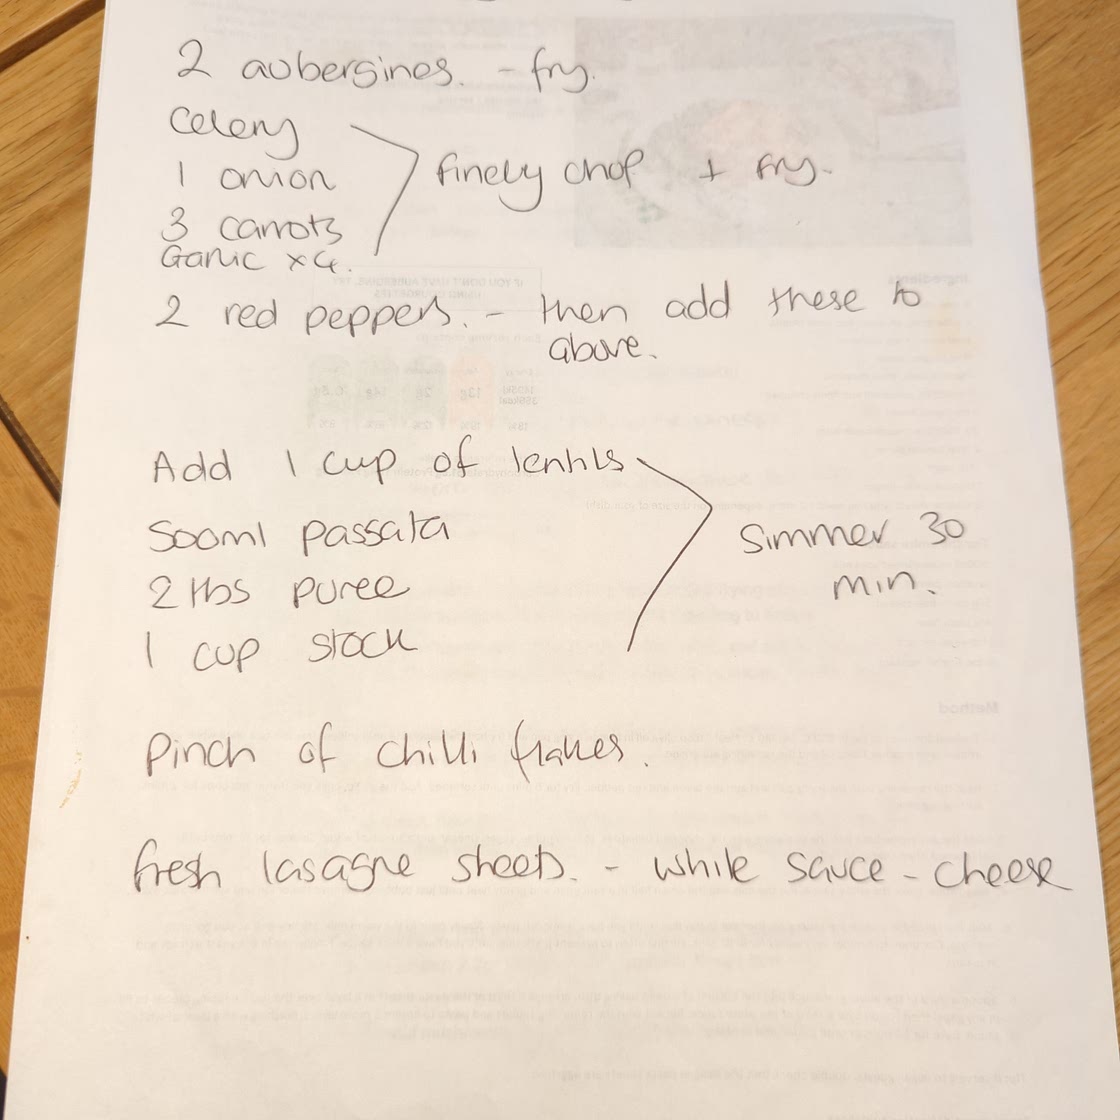 2 aubergines. - fry.
Celery
1 onion
finely chop + fry.
3 carrots
Garlic x4.
2 red peppers. - then add these to
above.
Add 1 cup of lentils
500ml passata
Simmer 30
min.
2 tbs puree
1 cup stock
Pinch of chilli flakes.
fresh lasagne sheets. - white sauce - cheese